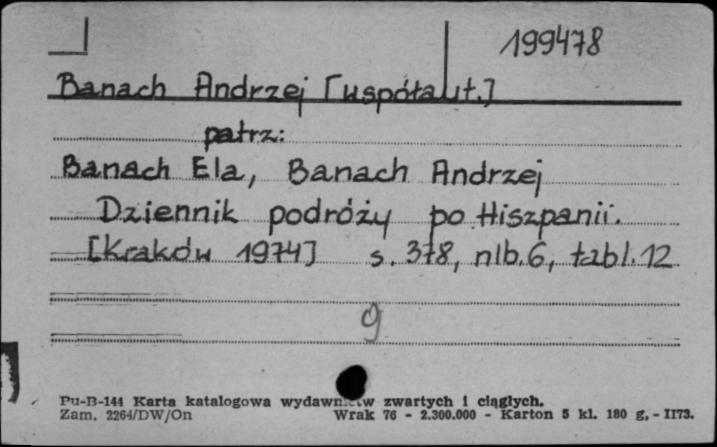 199478
Banach Andrzej [współaut.]
patrz:
Banach Ela, Banach Andrzej
Dziennik podróży po Hiszpanii.
[Kraków 1974] s. 378, nlb. 6, tabl. 12
9
Pu-B-144 Karta katalogowa wydawnictw zwartych i ciągłych.
Zam. 2264/DW/On Wrak 76 - 2.300.000 - Karton 5 kl. 180 g, - II73.